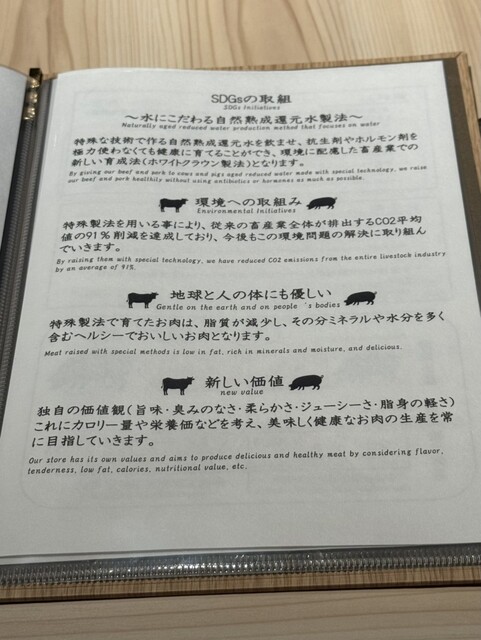 SDGsの取組
SDGs Initiatives
～水にこだわる自然熟成還元水製法～
Naturally aged reduced water production method that focuses on water
特殊な技術で作る自然熟成還元水を飲ませ、抗生剤やホルモン剤を
極力使わなくても健康に育てることができ、環境に配慮した畜産業での
新しい育成法(ホワイトクラウン製法)となります。
By giving our beef and pork to cows and pigs aged reduced water made with special technology, we raise
our beef and pork healthily without using antibiotics or hormones as much as possible.
環境への取組み
Environmental Initiatives
特殊製法を用いる事により、従来の畜産業全体が排出するCO2平均
値の91%削減を達成しており、今後もこの環境問題の解決に取り組ん
でいきます。
By raising them with special technology, we have reduced CO2 emissions from the entire livestock industry
by an average of 91%.
地球と人の体にも優しい
Gentle on the earth and on people 's bodies
特殊製法で育てたお肉は、脂質が減少し、その分ミネラルや水分を多く
含むヘルシーでおいしいお肉となります。
Meat raised with special methods is low in fat, rich in minerals and moisture, and delicious.
新しい価値
new value
独自の価値観(旨味・臭みのなさ・柔らかさ・ジューシーさ・脂身の軽さ)
これにカロリー量や栄養価などを考え、美味しく健康なお肉の生産を常
に目指していきます。
Our store has its own values and aims to produce delicious and healthy meat by considering flavor,
tenderness, low fat, calories, nutritional value, etc.